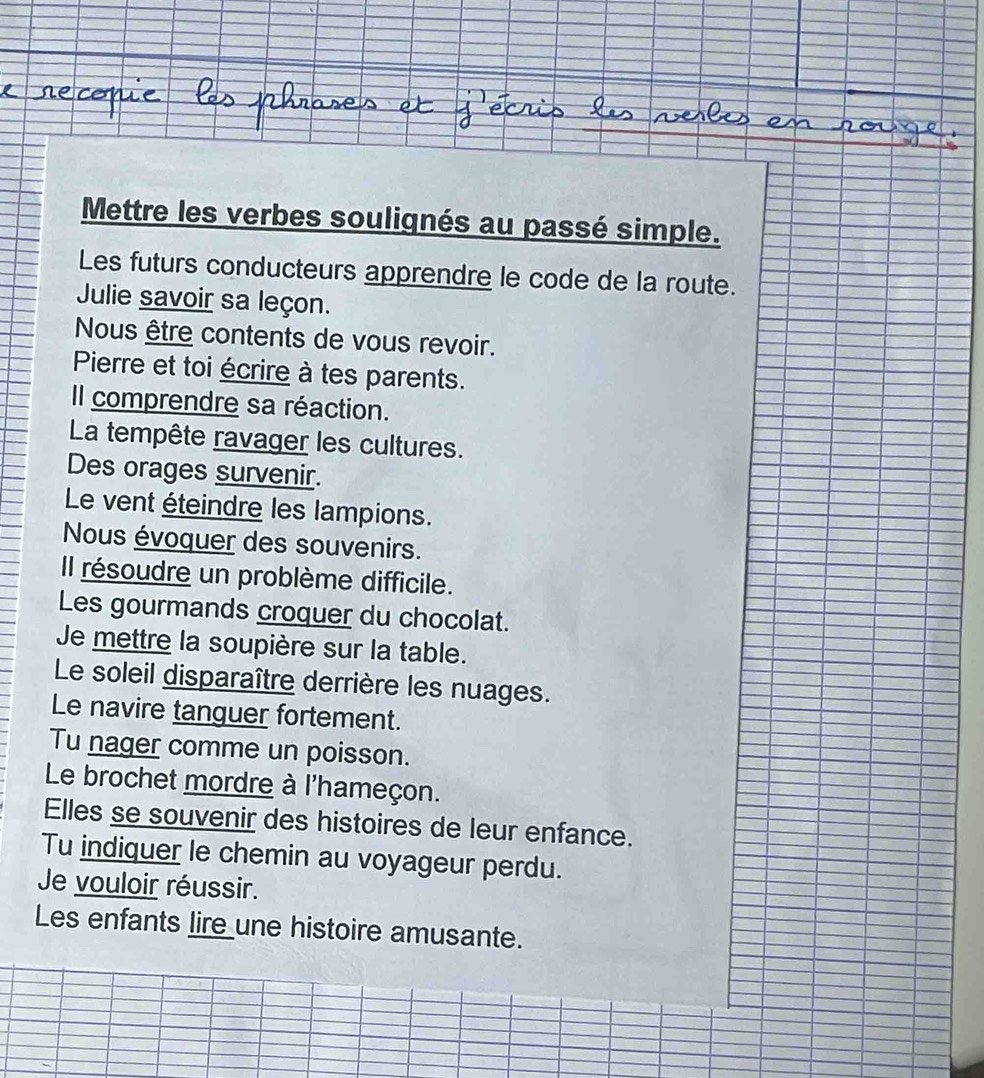 recopie les phrases et j'écris les verbes en rouge.
Mettre les verbes soulignés au passé simple.
Les futurs conducteurs apprendre le code de la route.
Julie savoir sa leçon.
Nous être contents de vous revoir.
Pierre et toi écrire à tes parents.
Il comprendre sa réaction.
La tempête ravager les cultures.
Des orages survenir.
Le vent éteindre les lampions.
Nous évoquer des souvenirs.
Il résoudre un problème difficile.
Les gourmands croquer du chocolat.
Je mettre la soupière sur la table.
Le soleil disparaître derrière les nuages.
Le navire tanguer fortement.
Tu nager comme un poisson.
Le brochet mordre à l'hameçon.
Elles se souvenir des histoires de leur enfance.
Tu indiquer le chemin au voyageur perdu.
Je vouloir réussir.
Les enfants lire une histoire amusante.